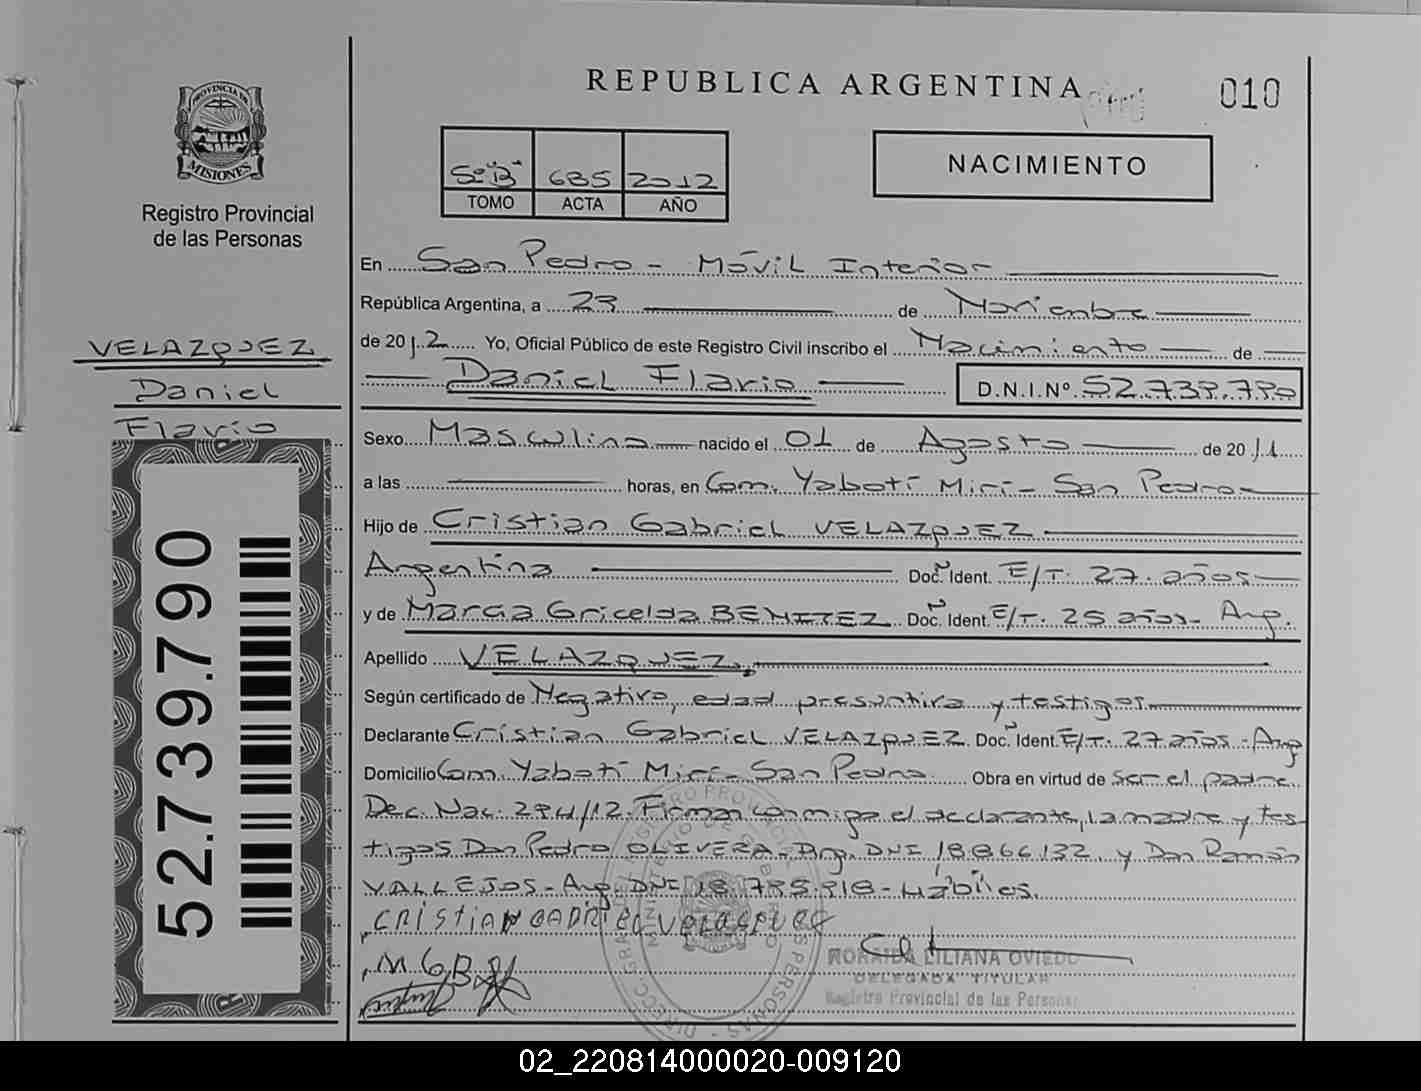 REPUBLICA ARGENTINA
010
PROVINCIA DE
MISIONES
Registro Provincial
de las Personas
5º "B" 685 2012
TOMO ACTA AÑO
NACIMIENTO
En San Pedro - Móvil Interior
República Argentina, a 23 de Noviembre
de 2012 Yo, Oficial Público de este Registro Civil inscribo el Nacimiento de
Daniel Flavio D.N.I.Nº 52.739.790
VELAZQUEZ
Daniel
Flavio
52.739.790
Sexo Masculino nacido el 01 de Agosto de 2011
a las horas, en Com. Yabotí Mirí - San Pedro
Hijo de Cristian Gabriel VELAZQUEZ
Argentina Doc. Ident. E/T. 27. años
y de Marcia Gricelda BENITEZ Doc. Ident. E/T. 25 años - Arg.
Apellido VELAZQUEZ
Según certificado de Negativo, edad presuntiva y testigos
Declarante Cristian Gabriel VELAZQUEZ Doc. Ident. E/T. 27 años - Arg
Domicilio Com. Yabotí Mirí - San Pedro Obra en virtud de ser el padre.
Dec. Nac. 294/12. Firman conmigo el declarante, la madre y tes-
tigos Don Pedro OLIVERA - Arg. DNI 18.866.132. y Don Ramón
VALLEJOS - Arg. DNI - Hábiles.
CRISTIAN GABRIEL VELASQUEZ
M G B
RORAIDA LILIANA OVIEDO
DELEGADA TITULAR
Registro Provincial de las Personas
02_220814000020-009120